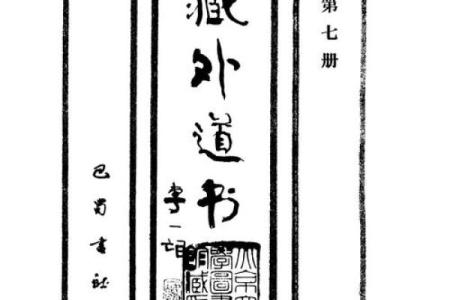 第七册
藏外道书
李一氓
巴蜀书社